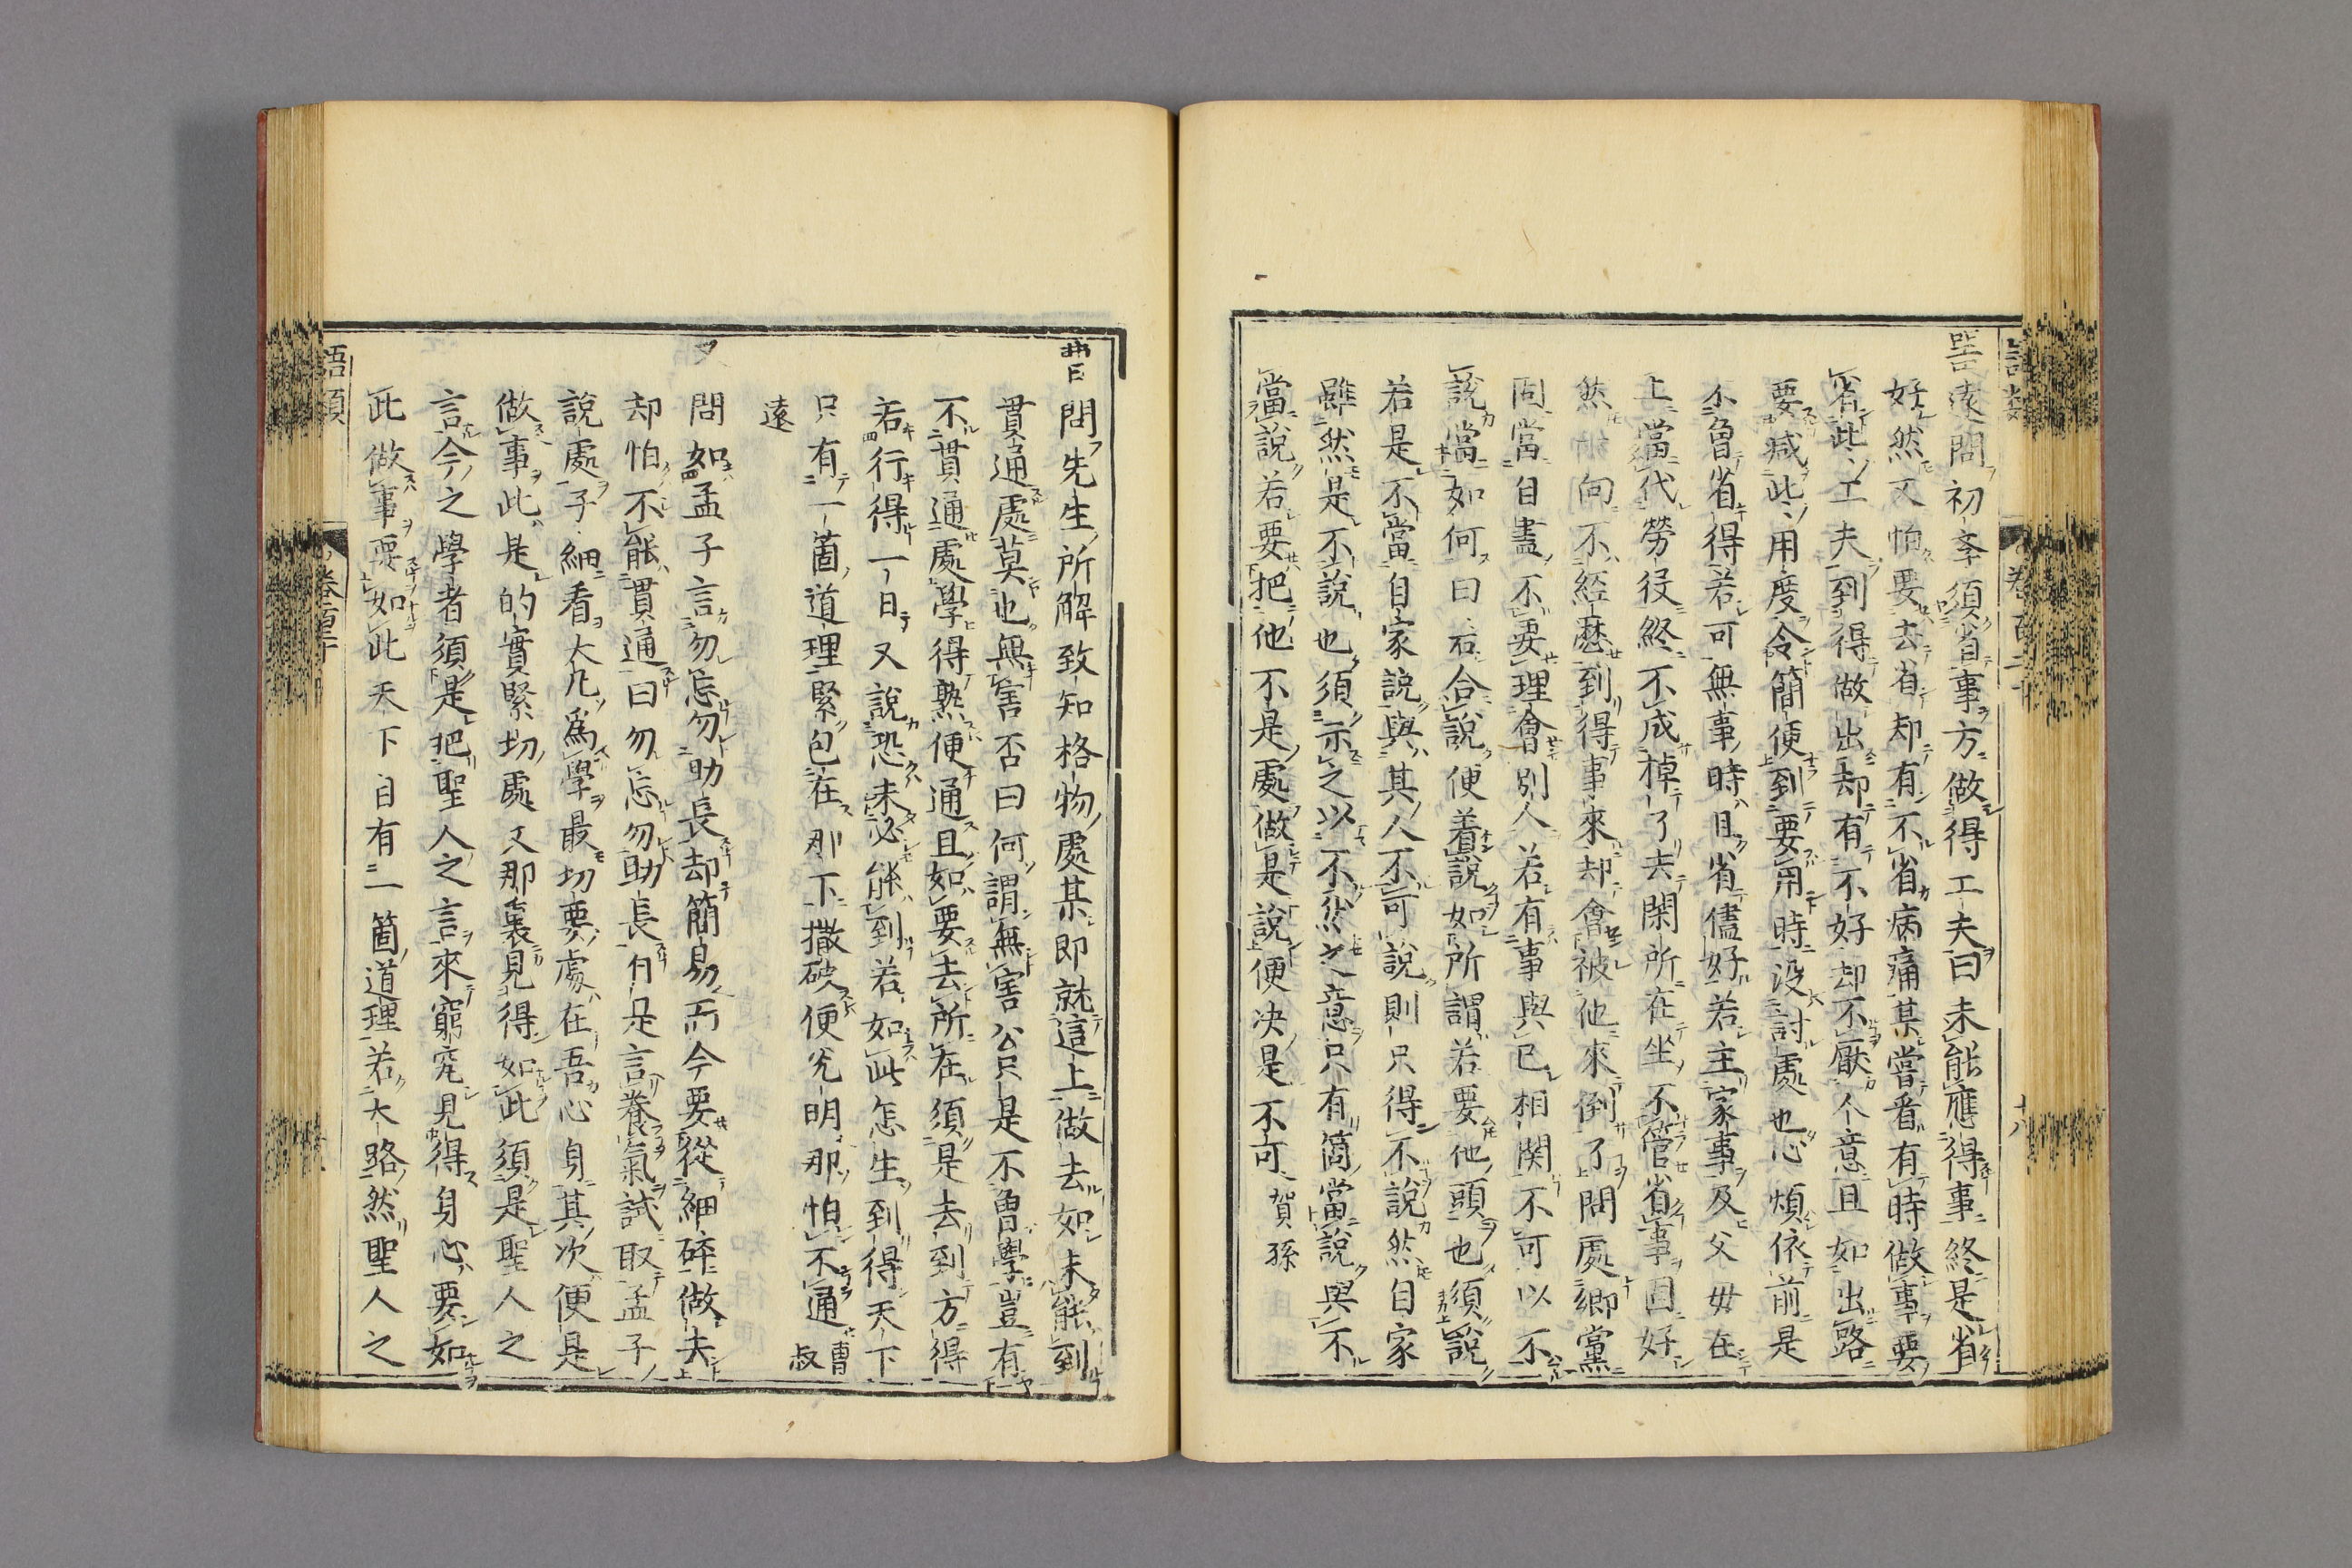 語類 卷百二十 十八
遠問初斈須省事方做得工夫曰未能應得事終是省
好然又怕要去省却有不省病痛某嘗看有時做事要
省些工夫到得做出却有不好却不厭人意且如出路
要减些用度令簡便到要用時没討處也心煩依前是
不曾省得若可無事時且省儘好若主家事及父母在
上當代勞役終不成掉了去閑所在坐不管省事固好
然一向不經歷到得事來却會被他來倒了問處鄉黨
固當自盡不要理會別人若有事與已相關不可以不
說當如何曰若合說便着說如所謂若要他頭也須說
若是不當自家說與其人不可說則只得不說然自家
雖然是不說也須示之以不然之意只有箇當說與不
當說若要把他不是處做是說便决是不可 賀孫
曹問先生所解致知格物處某即就這上做去如未能到
貫通處莫也無害否曰何謂無害公只是不曾學豈有
不貫通處學得熟便通且如要去所在須是去到方得
若行得一日又說恐未必能到若如此怎生到得天下
只有一箇道理緊包在那下撒破便光明那怕不通 曹叔
遠
問如孟子言勿忘勿助長却簡易而今要從細碎做去
却怕不能貫通曰勿忘勿助長自是言養氣試取孟子
說處子細看大凡爲學最切要處在吾心身其次便是
做事此是的實緊切處又那裏見得如此須是聖人之
言今之學者須是把聖人之言來窮究見得身心要如
此做事要如此天下自有一箇道理若大路然聖人之
語類 卷百二十